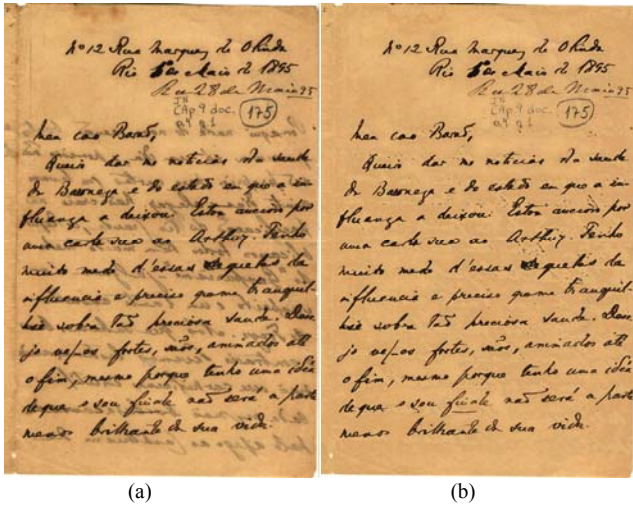 Nº 12 Rua Marquez de Olinda
Rio 5 de Maio de 1895
28 de Maio 95
JN
CAp 9 doc.
175
Meu caro Barão,
Queira dar me noticias da saude
da Baroneza e do estado em que a in-
fluenza a deixou. Estou ancioso por
uma carta sua ao Arthur. Tenho
muito medo d'essas da
influencia e preciso que me tranquil-
lise sobre tão preciosa saude. Dese
jo vel-os fortes, sãos, animados até
o fim, mesmo porque tenho uma idéa
de que o seu finale não será a parte
menos brilhante da sua vida.
Nº 12 Rua Marquez de Olinda
Rio 5 de Maio de 1895
28 de Maio 95
JN
CAp 9 doc.
175
Meu caro Barão,
Queira dar me noticias da saude
da Baroneza e do estado em que a in-
fluenza a deixou. Estou ancioso por
uma carta sua ao Arthur. Tenho
muito medo d'essas da
influencia e preciso que me tranquil-
lise sobre tão preciosa saude. Dese
jo vel-os fortes, sãos, animados até
o fim, mesmo porque tenho uma idéa
de que o seu finale não será a parte
menos brilhante da sua vida.
(a)
(b)